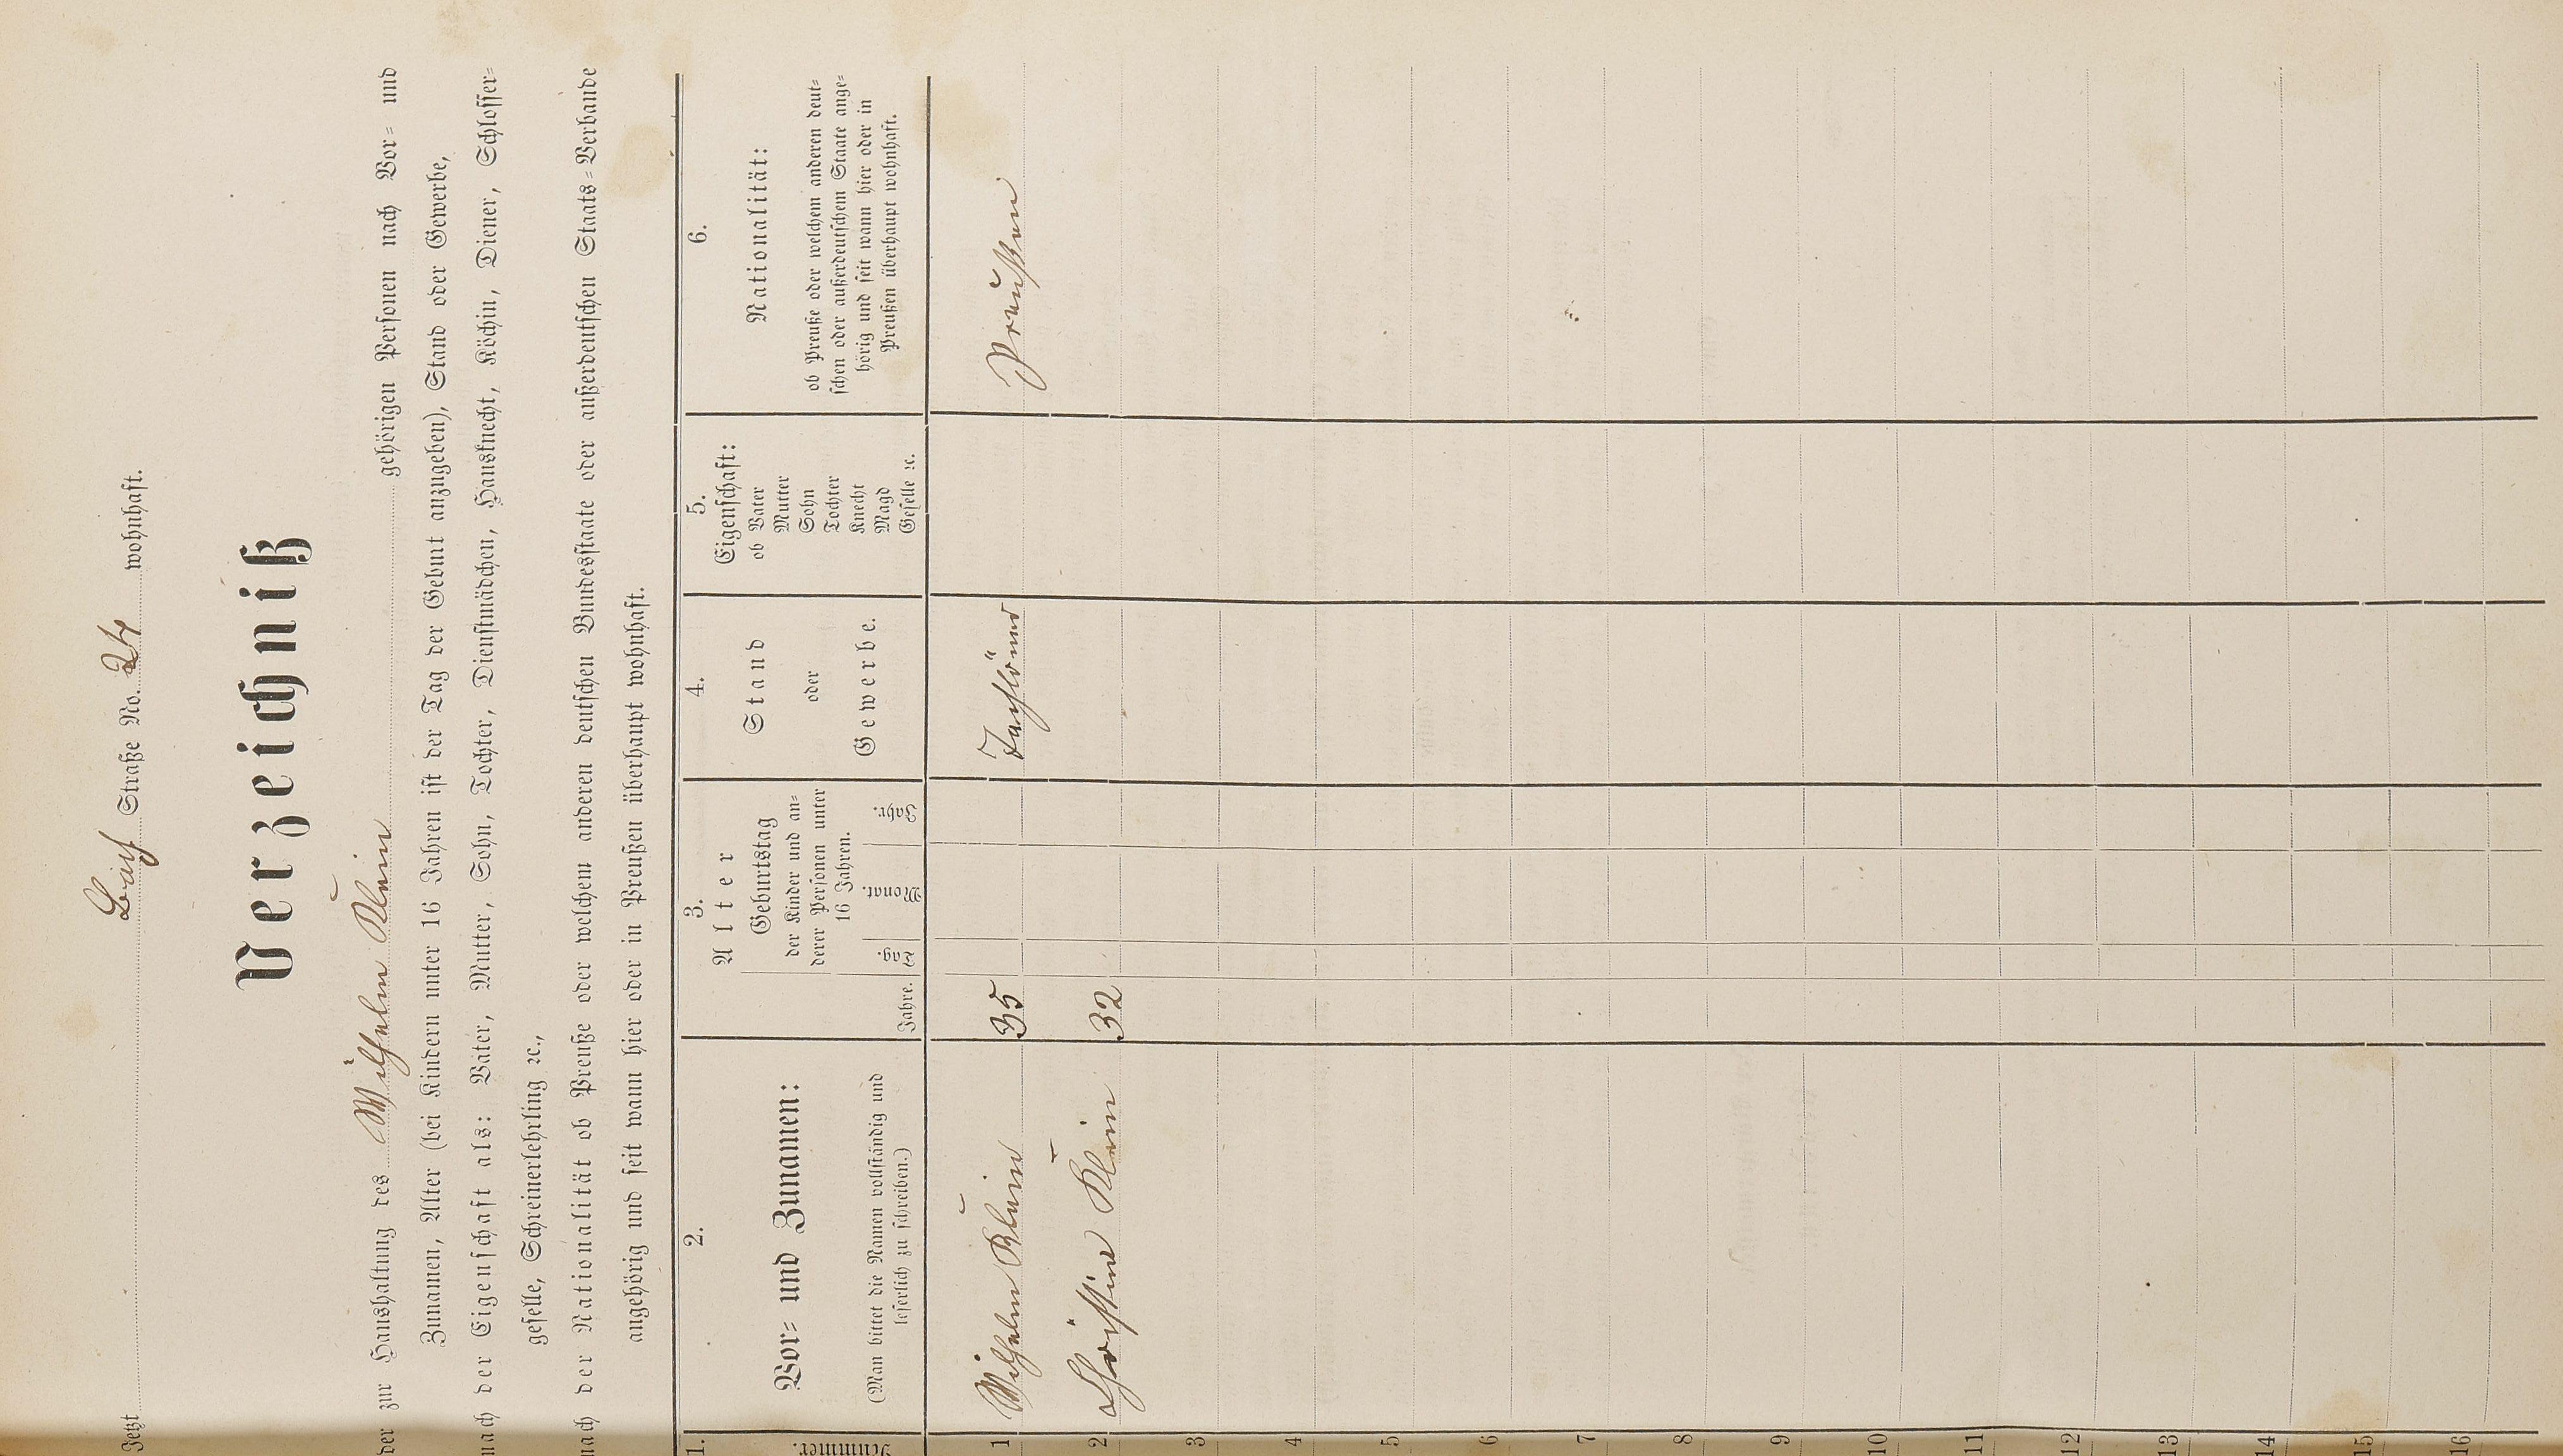 Jetzt Bach Straße No. 24 wohnhaft.
Verzeichniß
der zur Haushaltung des Wilhelm Klein gehörigen Personen nach Vor= und
Zunamen, Alter (bei Kindern unter 16 Jahren ist der Tag der Geburt anzugeben), Stand oder Gewerbe,
nach der Eigenschaft als: Vater, Mutter, Sohn, Tochter, Dienstmädchen, Hausknecht, Köchin, Diener, Schlosser=
geselle, Schreinerlehrling ꝛc.,
nach der Nationalität ob Preuße oder welchem anderen deutschen Bundesstaate oder außerdeutschen Staats=Verbande
angehörig und seit wann hier oder in Preußen überhaupt wohnhaft.
1.
Nummer.
2.
Vor= und Zunamen:
(Man bittet die Namen vollständig und
leserlich zu schreiben.)
3.
Alter
Jahre.
Geburtstag
der Kinder und an=
derer Personen unter
16 Jahren.
Tag.
Monat.
Jahr.
4.
Stand
oder
Gewerbe.
5.
Eigenschaft:
ob Vater
Mutter
Sohn
Tochter
Knecht
Magd
Geselle ꝛc.
6.
Nationalität:
ob Preuße oder welchem anderen deut=
schen oder außerdeutschem Staate ange=
hörig und seit wann hier oder in
Preußen überhaupt wohnhaft.
1 Wilhelm Klein 35 Taglöner Preußen
2 Christine Klein 32
3
4
5
6
7
8
9
10
11
12
13
14
15
16